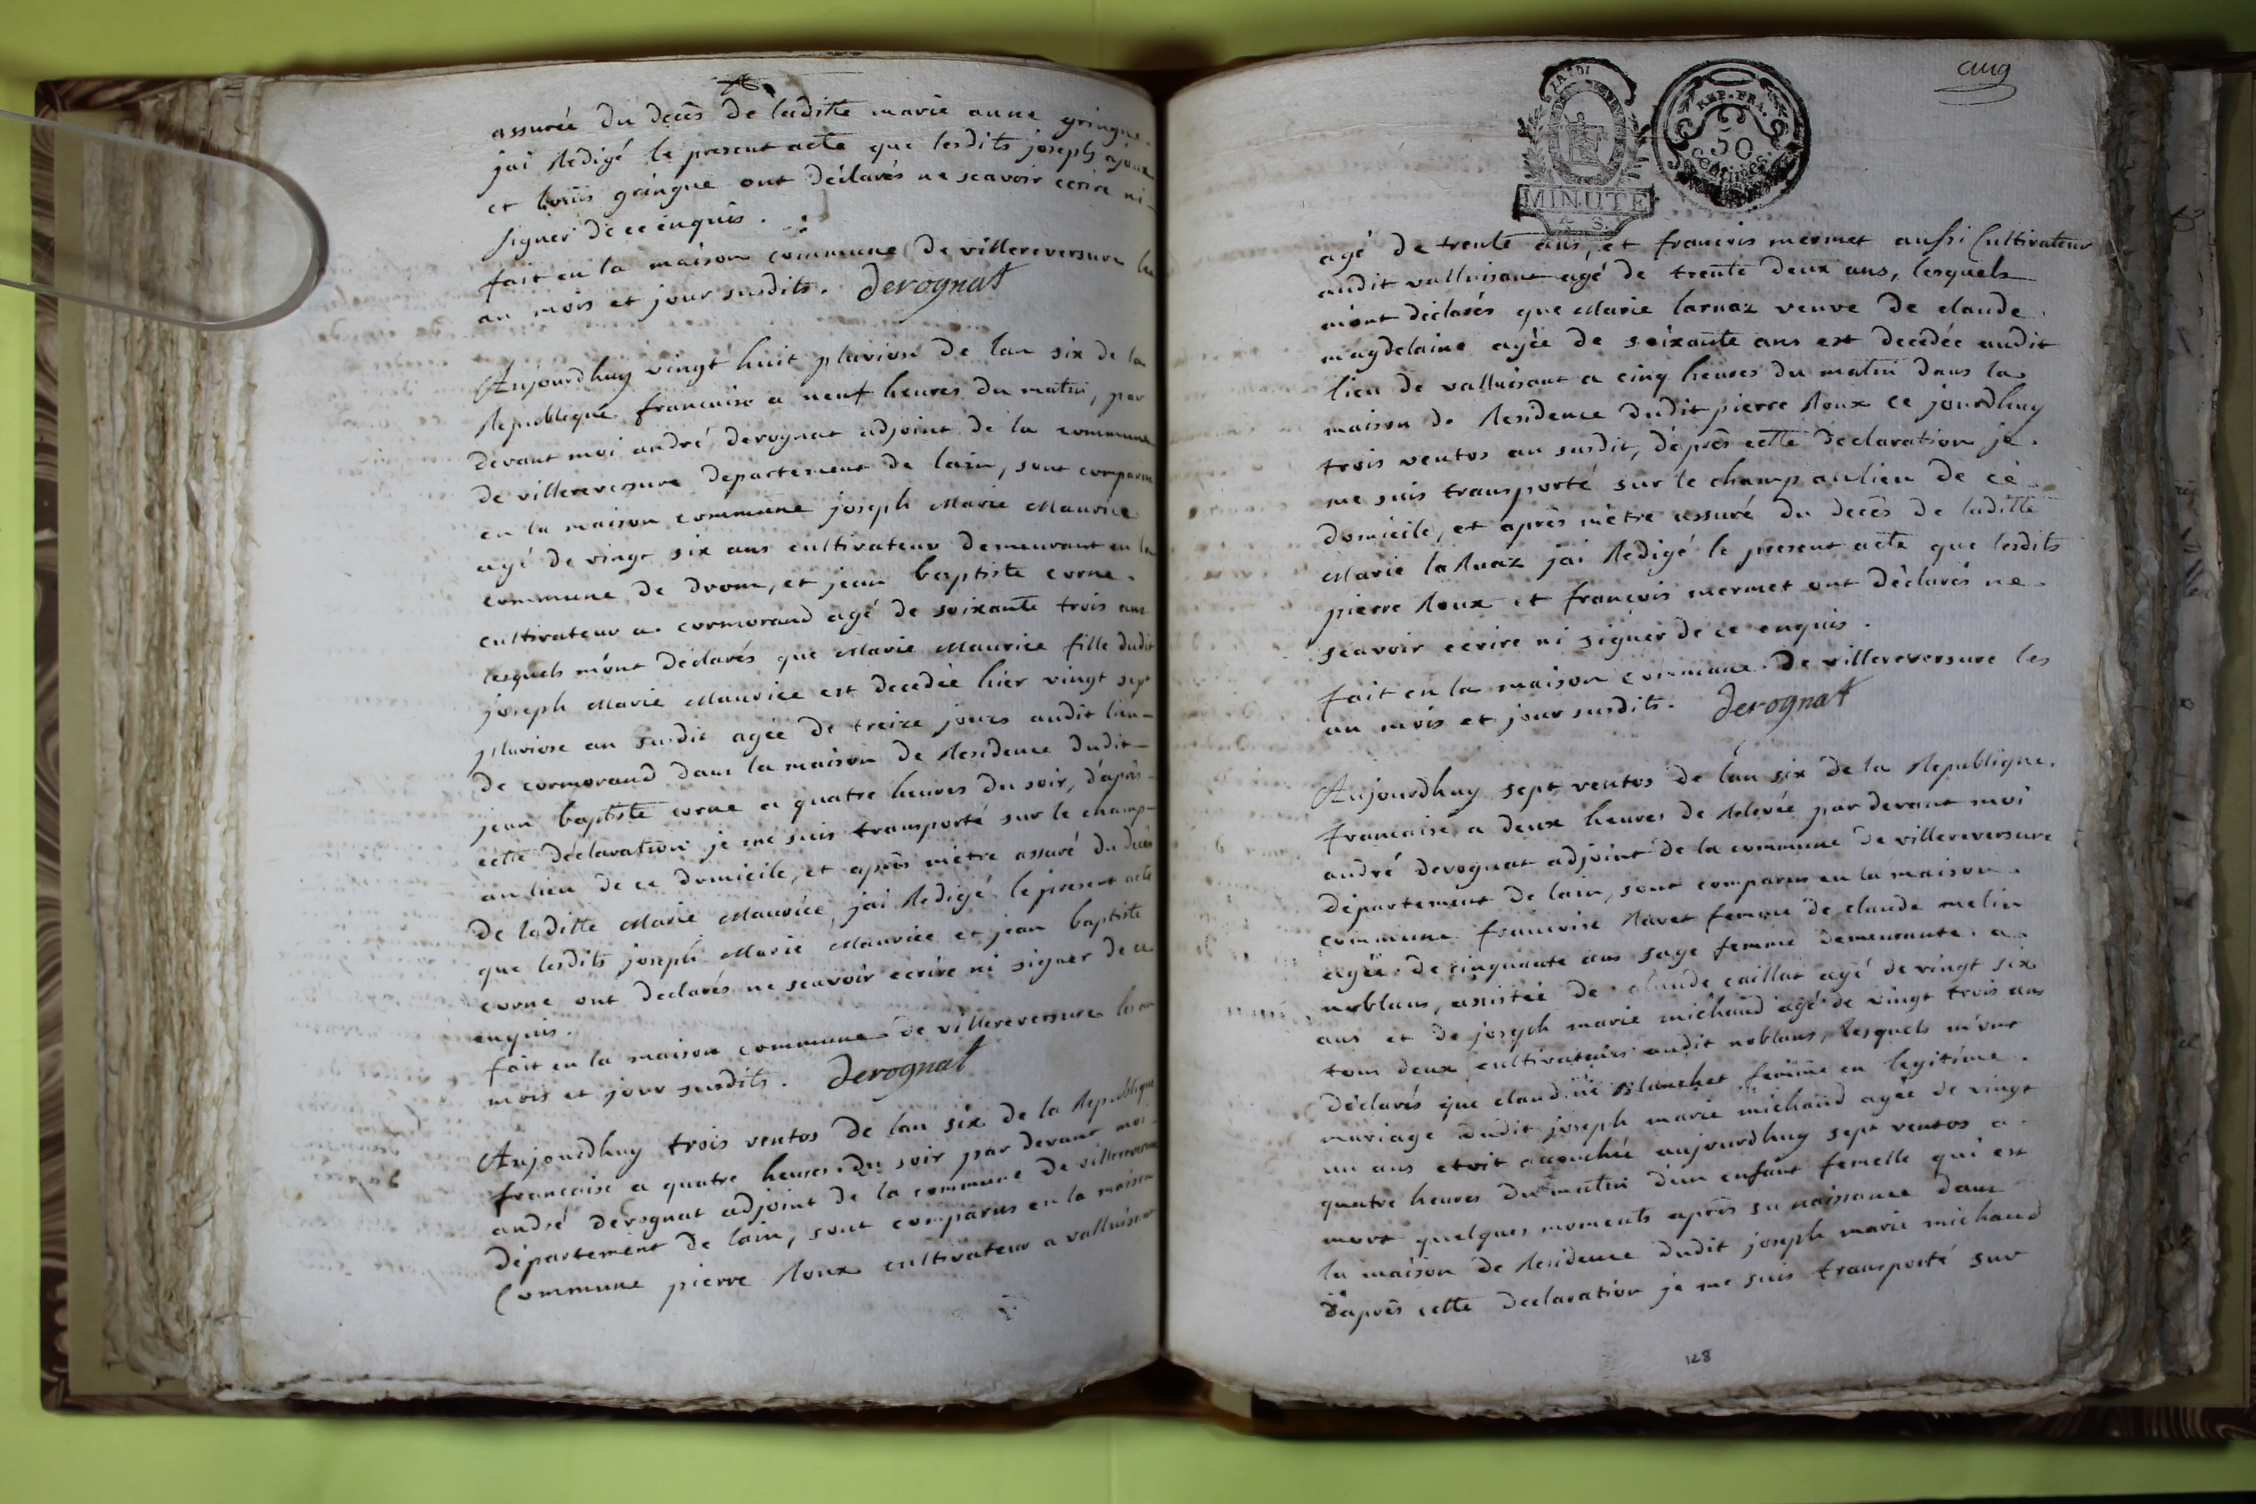 assurée du decès de laditte marie anne gringue
jai Redigé le present acte que lesdits joseph
et gringue ont déclarés ne scavoir ecrire ni
signer de ce enquis.
fait en la maison commune de villereversure les
an mois et jour susdits. Derognat
Aujourdhuy vingt huit pluviose de lan six de la
Republique francaise a neuf heures du matin, par
devant moi andré derognat adjoint de la commune
de villereversure departement de lain, sont comparus
en la maison commune joseph Marie Maurice
agé de vingt six ans cultivateur demeurant en la
commune de drom, et jean baptiste corne
cultivateur a cormorand agé de soixante trois ans
lesquels m'ont déclarés que Marie Maurice fille dudit
joseph Marie Maurice est decedée hier vingt sept
pluviose an susdit agée de treize jours audit lieu
de cormorand dans la maison de Residence dudit
jean baptiste corne a quatre heures du soir, d'après
cette déclaration je me suis transporté sur le champ
au lieu de ce domicile, et après mètre assuré du decès
de laditte Marie Maurice, jai Redigé le present acte
que lesdits joseph Marie Maurice et jean baptiste
corne ont declarés ne scavoir ecrire ni signer de ce
enquis.
fait en la maison commune de villereversure les an
mois et jour susdits. Derognat
Aujourdhuy trois ventos de lan six de la Republique
francaise a quatre heures du soir par devant moi
andré derognat adjoint de la commune de villereversure
département de lain, sont comparus en la maison
Commune pierre Roux cultivateur a valluisant
REP. FRA.
50
Centimes
MINUTE
agé de trente ans, et francois mermet aussi Cultivateur
audit valluisant agé de trente deux ans, lesquels
m'ont déclarés que Marie laruaz veuve de claude
magdelaine agée de soixante ans est decedée audit
lieu de valluisant a cinq heures du matin dans la
maison de Residence dudit pierre Roux ce jourdhuy
trois ventos an susdit, d'après cette declaration je
me suis transporté sur le champ au lieu de ce
domicile, et après mètre assuré du decès de laditte
Marie laRuaz jai Redigé le present acte que lesdits
pierre Roux et françois mermet ont déclarés ne
scavoir ecrire ni signer de ce enquis.
fait en la maison commune de villereversure les
an mois et jour susdits. Derognat
Aujourdhuy sept ventos de l'an six de la Republique
francaise a deux heures de Relevée par devant moi
andré derognat adjoint de la commune de villereversure
département de lain, sont comparus en la maison
commune francoise Ravet femme de claude melin
agée de cinquante ans sage femme demeurante a
noblans, assistée de claude caillat agé de vingt six
ans et de joseph marie michaud agé de vingt trois ans
tous deux cultivateurs audit noblans, lesquels m'ont
déclarés que claudine Blanchet femme en legitime
mariage dudit joseph marie michaud agée de vingt
un ans etoit accouchée aujourdhuy sept ventos a
quatre heures du matin d'un enfant femelle qui est
mort quelques moments après sa naissance dans
la maison de Residence dudit joseph marie michaud
d'après cette declaration je me suis transporté sur
128